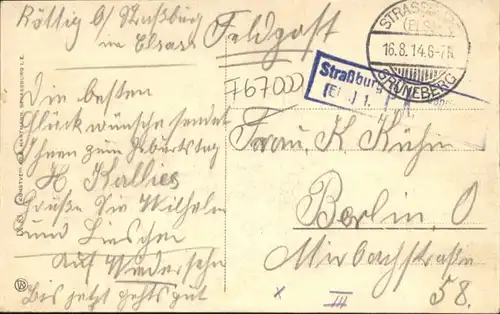 Röttig b/ Straßburg
im Elsass
Feldpost
STRASSBURG
(ELS.)
16.8.14.6-7N.
GRÜNEBERG
Straßburg
(Els.) 1.
767000
Die besten
Glückwünsche sendet
Ihnen zum Geburtstag
H Kallies
Grüße Sie Wilhelm
und Lieschen
Auf Wiedersehn
Bis jetzt gehts gut
Frau K Kühn
Berlin, O
Mirbachstraße
58.
x III